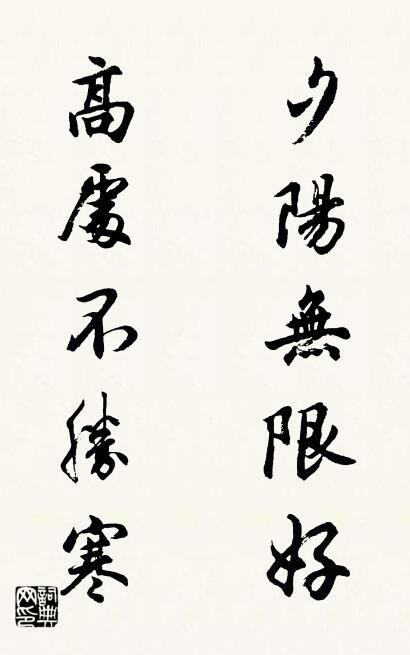 夕陽無限好
高處不勝寒
詞典網印